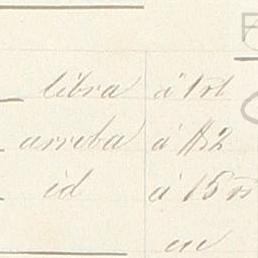 libra á 1 rl
arroba á 12
id á 15 rs
en